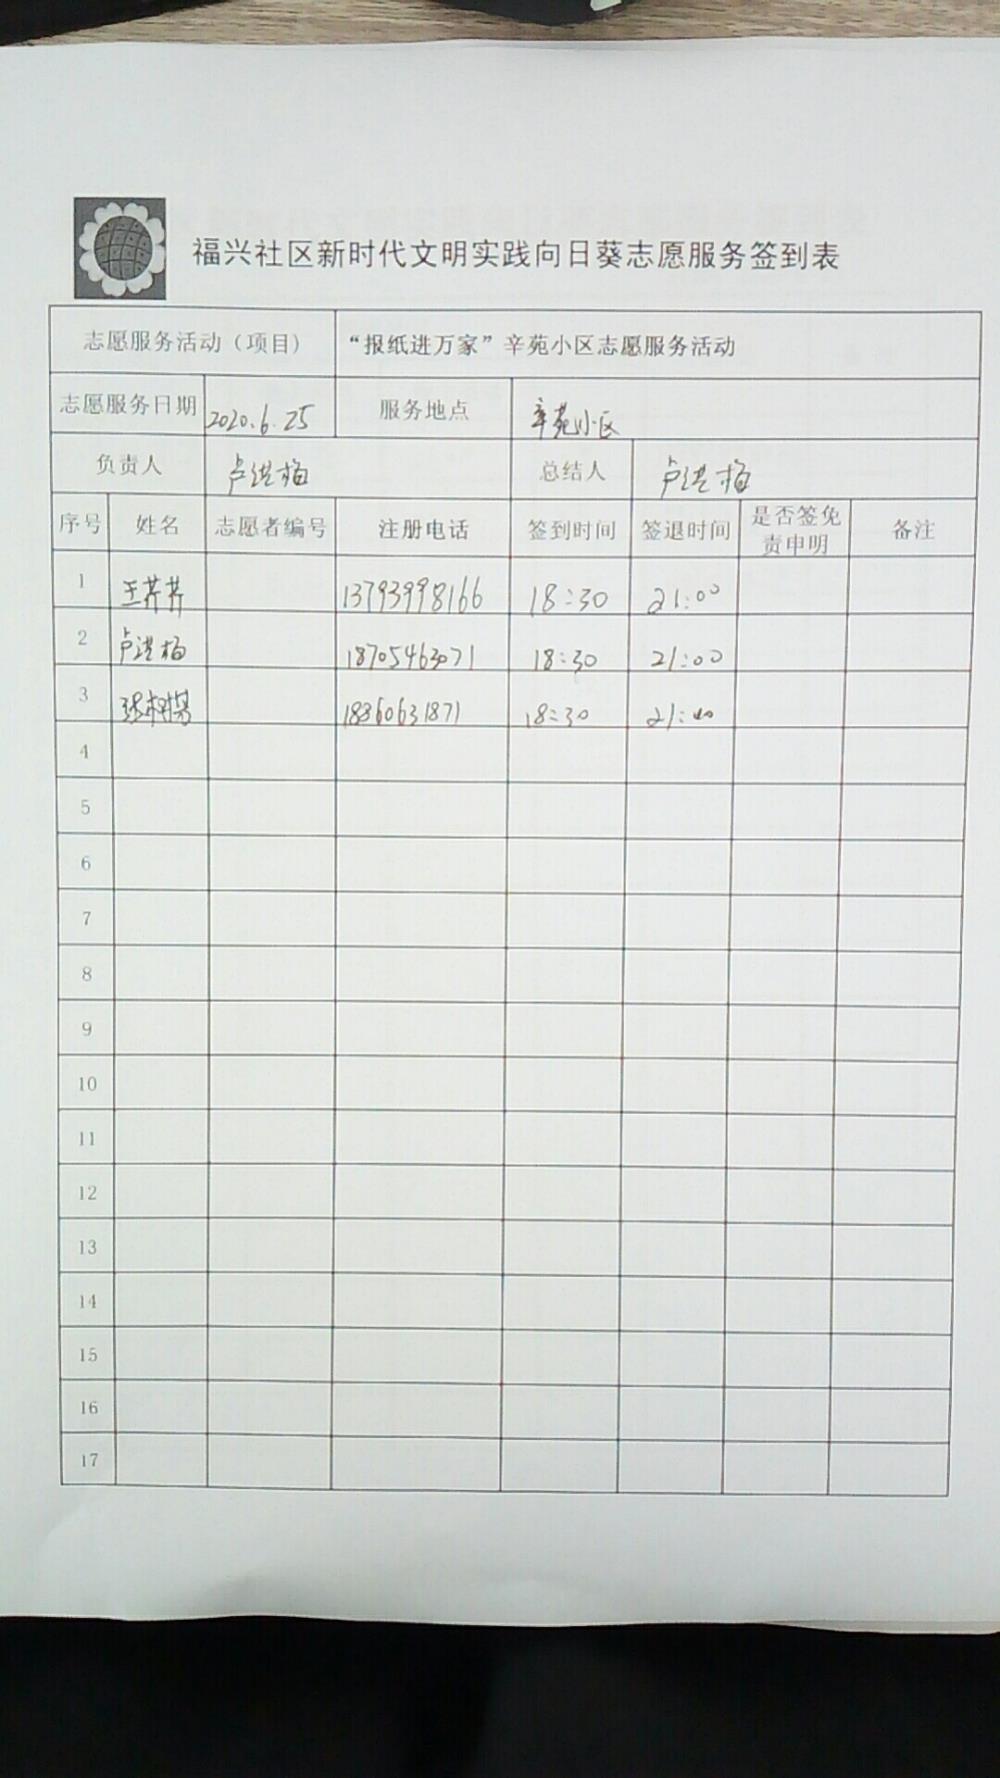 福兴社区新时代文明实践向日葵志愿服务签到表
志愿服务活动（项目） “报纸进万家”辛苑小区志愿服务活动
志愿服务日期 2020.6.25 服务地点 辛苑小区
负责人 卢洪梅 总结人 卢洪梅
序号 姓名 志愿者编号 注册电话 签到时间 签退时间 是否签免责申明 备注
1 王芹芹 13793998166 18:30 21:00
2 卢洪梅 18705463071 18:30 21:00
3 18860631871 18:30 21:00
4
5
6
7
8
9
10
11
12
13
14
15
16
17